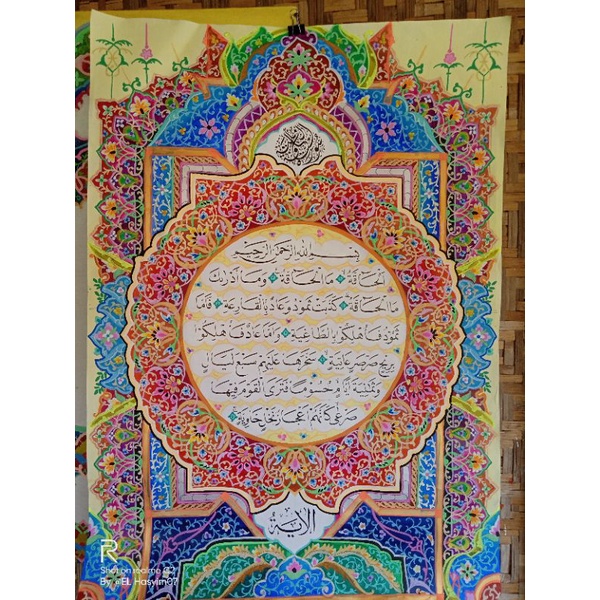 بِسْمِ اللهِ الرَّحْمٰنِ الرَّحِيْمِ
اَلْحَاقَّةُ مَا الْحَاقَّةُ وَمَا أَدْرٰىكَ
مَا الْحَاقَّةُ كَذَّبَتْ ثَمُوْدُ وَعَادٌ بِالْقَارِعَةِ فَأَمَّا
ثَمُوْدُ فَأُهْلِكُوْا بِالطَّاغِيَةِ وَأَمَّا عَادٌ فَأُهْلِكُوْا
بِرِيْحٍ صَرْصَرٍ عَاتِيَةٍ سَخَّرَهَا عَلَيْهِمْ سَبْعَ لَيَالٍ
وَثَمٰنِيَةَ أَيَّامٍ حُسُوْمًا فَتَرَى الْقَوْمَ فِيْهَا
صَرْعٰى كَأَنَّهُمْ أَعْجَازُ نَخْلٍ خَاوِيَةٍ
الآية
R
Shot on realme
By @EL Hasyim07